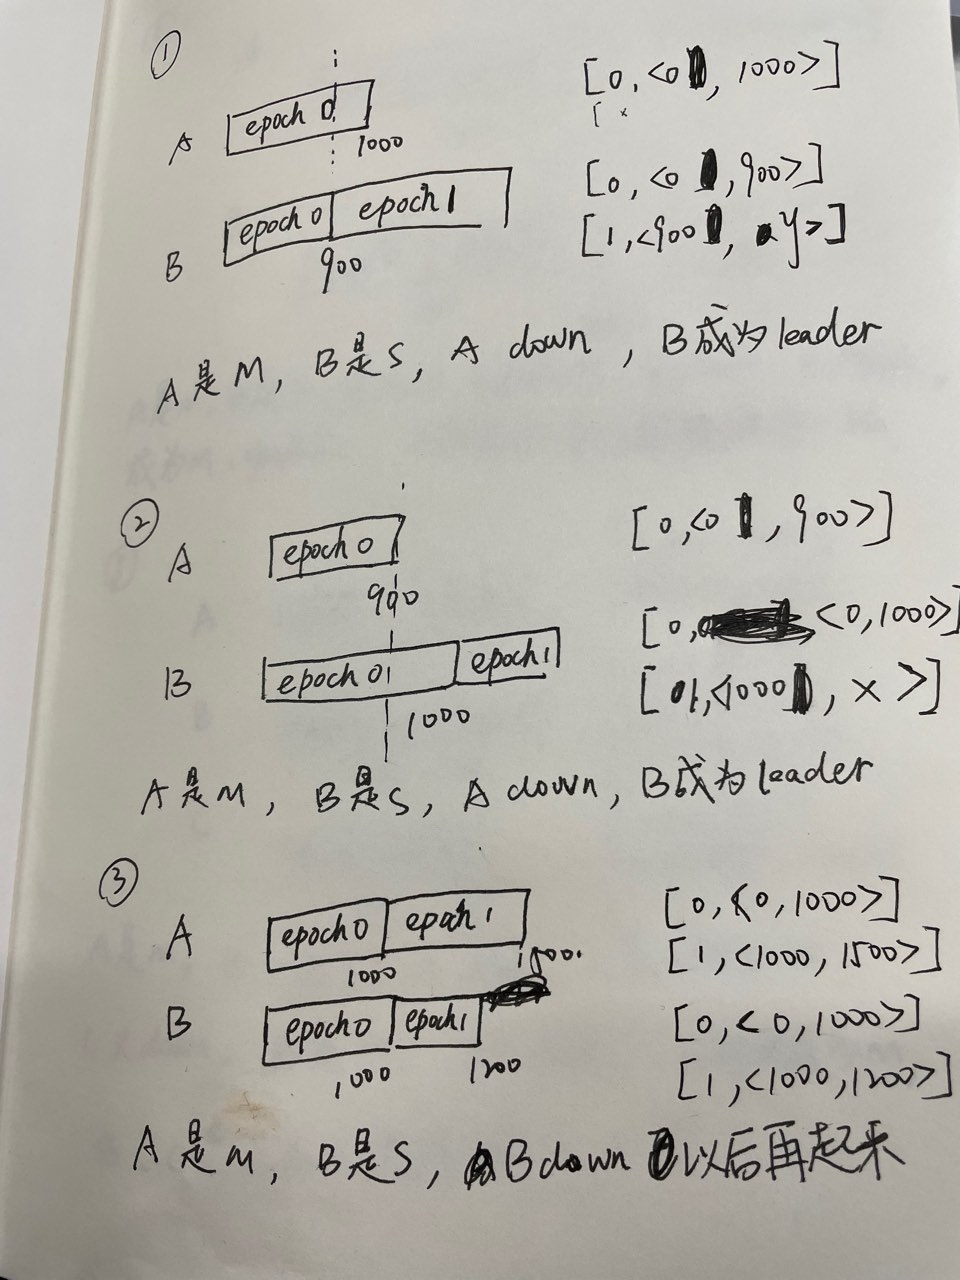 ①
A epoch 0 1000 [0, <0, 1000>]
B epoch 0 epoch 1 900 [0, <0, 900>]
[1, <900, y>]
A是M, B是S, A down, B成为leader
②
A epoch 0 900 [0, <0, 900>]
[0, <0, 1000>]
B epoch 0 epoch 1 1000 [1, <1000, x>]
A是M, B是S, A down, B成为leader
③
A epoch 0 epoch 1 [0, <0, 1000>]
1000 1500 [1, <1000, 1500>]
B epoch 0 epoch 1 [0, <0, 1000>]
1000 1200 [1, <1000, 1200>]
A是M, B是S, B down 以后再起来